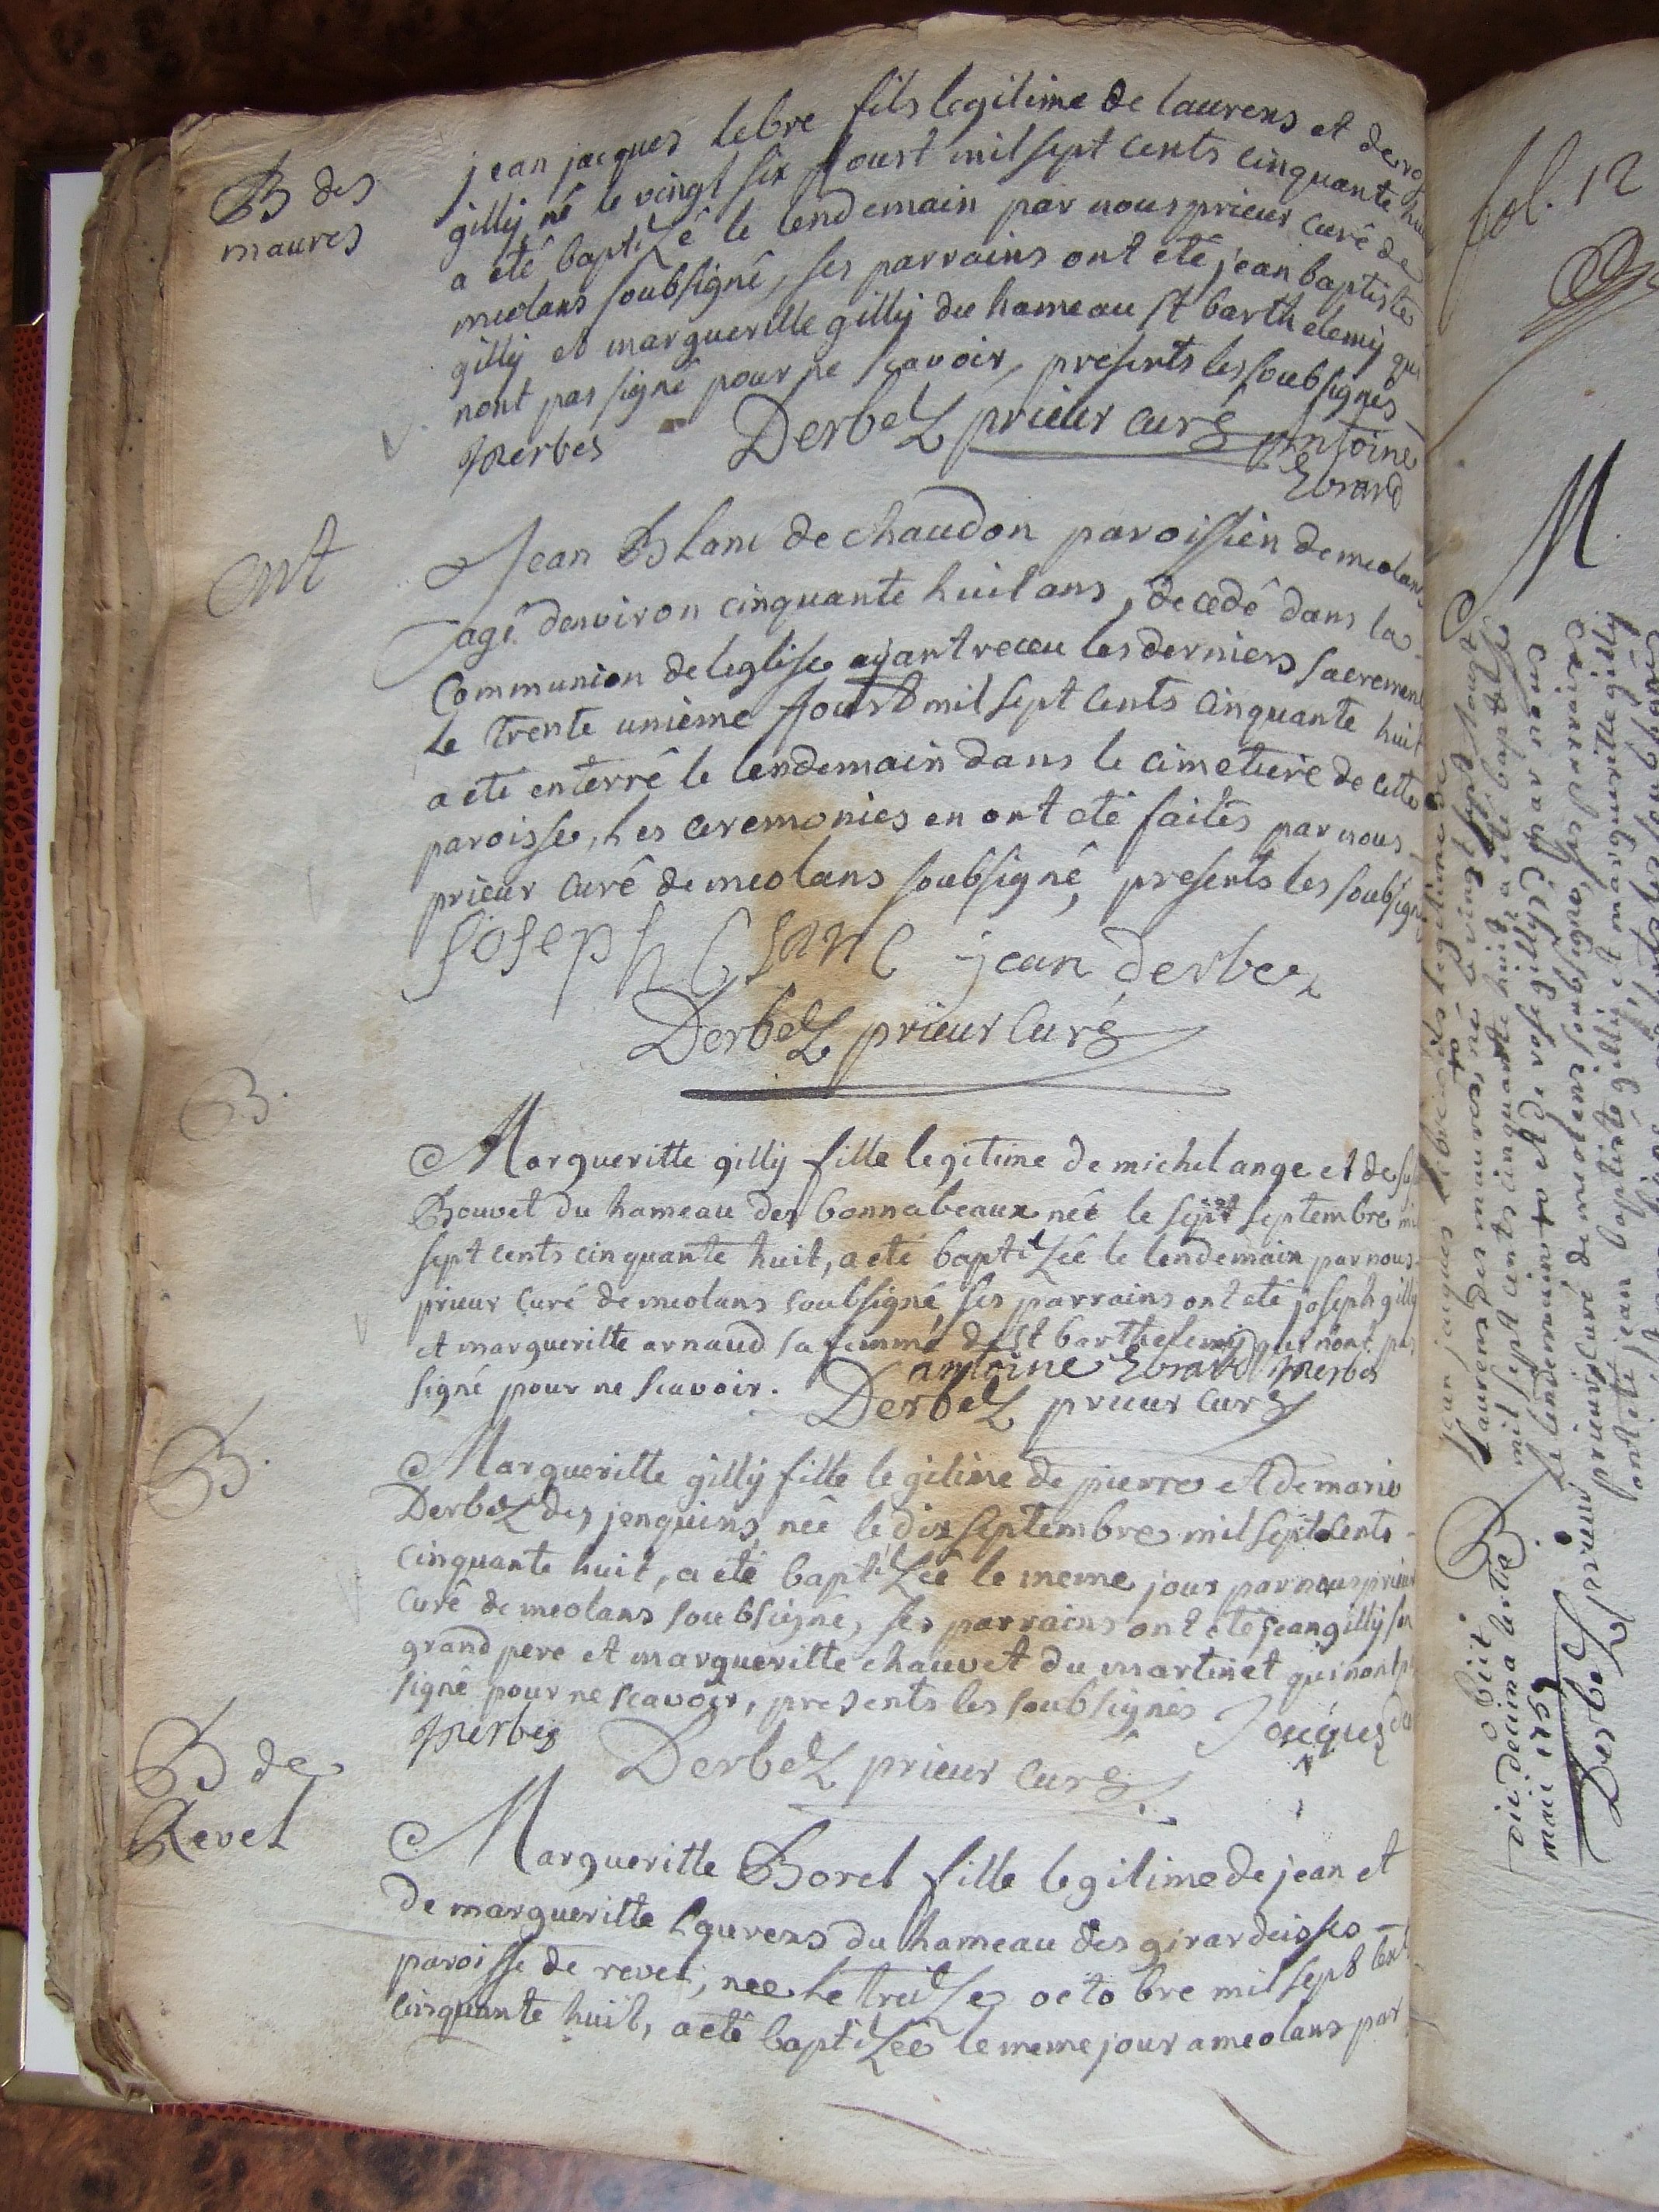 B des
maures
jean jacques lebre fils legitime de laurens et de
gilly né le vingt six Aoust mil sept cents cinquante
a eté baptizé le lendemain par nous prieur curé de
meolans soubsigné, ses parrains ont eté jean baptiste
gilly et margueritte gilly du hameau st barthelemy qui
nont pas signé pour ne scavoir, presents les soubsignés
Derbez prieur curé Antoine
Ebrard
mt
Jean Blanc de chaudon paroissien de meolans
agé denviron cinquante huit ans, decedé dans la
Communion de leglise ayant receu les derniers sacrement
le trente unieme Aoust mil sept cents cinquante huit
a eté enterré le lendemain dans le cimetiere de cette
paroisse, les ceremonies en ont eté faites par nous
prieur curé de meolans soubsigné, presents les soubsign
joseph blanc jean derbez
Derbez prieur curé
B.
Margueritte gilly fille legitime de michel ange et de
Bouvet du hameau des bonnabeaux neé le sept septembre
sept cents cinquante huit, a eté baptizeé le lendemain par nous
prieur curé de meolans soubsigné, ses parrains ont eté joseph gilly
et margueritte arnaud sa femme de st barthelemy qui nont pas
signé pour ne scavoir. antoine Ebrard
Derbez prieur curé
B.
Margueritte gilly fille legitime de pierre et de marie
Derbez des jenquins, neé le dix septembre mil sept cents
cinquante huit, a eté baptizeé le meme jour par nous prieur
Curé de meolans soubsigné, ses parrains ont eté jean gilly son
grand pere et margueritte chauvet du martinet qui nont
signé pour ne scavoir, presents les soubsignés Jacques
Derbez prieur curé
B de
Revel
Margueritte Borel fille legitime de jean et
de margueritte laurens du hameau des
paroisse de revel, neé le treize octobre mil sept cent
cinquante huit, a eté baptizeé le meme jour a meolans par
fol. 12
M.
laurens des maures, né le vingt sept
mil sept cents cinquante huit, a eté baptizé
le lendemain
prieur curé de meolans soubsigné, ses parrains
ont eté jean baptiste gilly et margueritte gilly
B
obiit
die decima tertia
maii
Derbez prieur